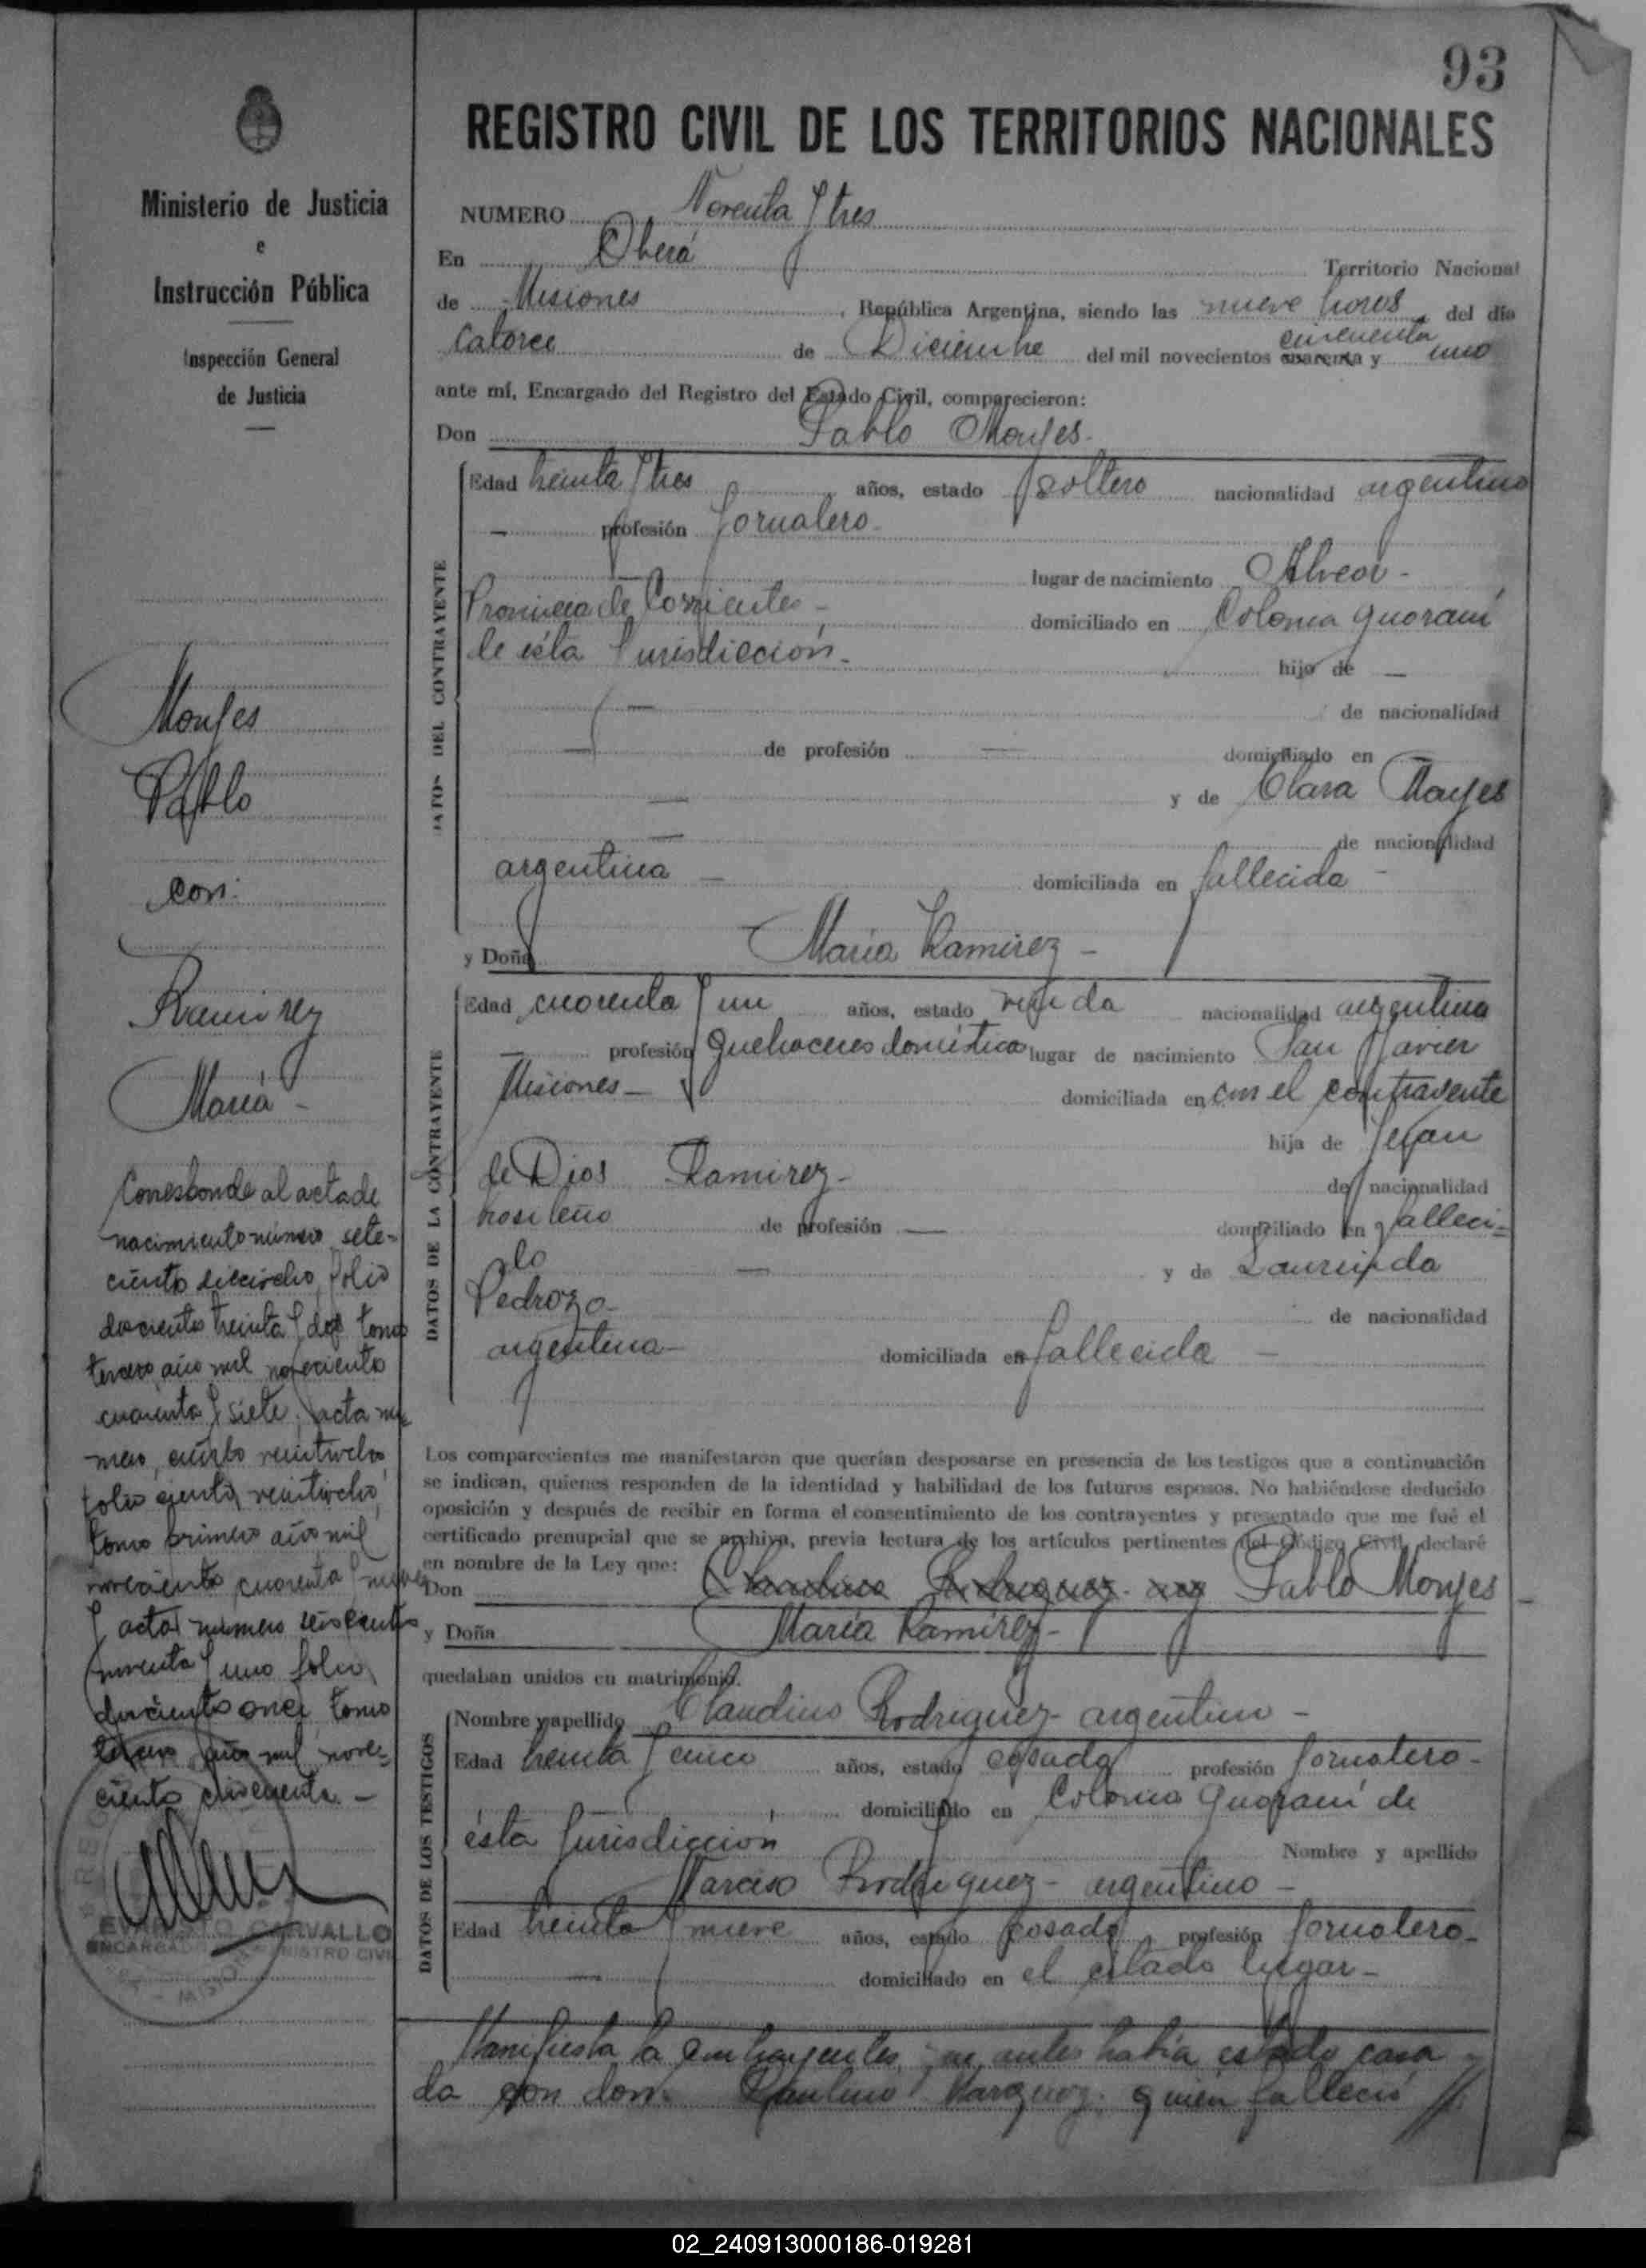 93
REGISTRO CIVIL DE LOS TERRITORIOS NACIONALES
Ministerio de Justicia
e
Instrucción Pública
Inspección General
de Justicia
Monjes
Pablo
con:
Ramirez
María -
Corresponde al acta de
nacimiento número sete-
ciento dieciocho, folio
doscientos treinta y dos tomo
tercero, año mil noveciento
cuarenta y siete; acta nú
mero, ciento veintiocho,
folio ciento veintiocho,
tomo primero año mil
noveciento cuarenta y nueve
y acta número seiscientos
noventa y uno folio
doscientos once tomo
tercero año mil nove-
ciento cincuenta. -
ERNESTO CARVALLO
ENCARGADO REGISTRO CIVIL
MISIONES
NUMERO Noventa y tres
En Oberá Territorio Nacional
de Misiones, República Argentina, siendo las nueve horas, del día
Catorce de Diciembre del mil novecientos cuarenta y cincuenta uno
ante mí, Encargado del Registro del Estado Civil, comparecieron:
Don Pablo Monjes.
DATOS DEL CONTRAYENTE
Edad treinta y tres años, estado soltero nacionalidad argentino
— profesión Jornalero.
lugar de nacimiento Alvear -
Provincia de Corrientes - domiciliado en Colonia Guaraní
de ésta Jurisdicción. hijo de —
— de nacionalidad
— de profesión — domiciliado en
— y de Clara Monjes
— de nacionalidad
argentina — domiciliada en fallecida -
y Doña María Ramirez -
DATOS DE LA CONTRAYENTE
Edad cuarenta y un años, estado viuda nacionalidad argentina
— profesión Quehaceres domésticos lugar de nacimiento San Javier
Misiones - domiciliada en con el contrayente
hija de Juan
de Dios Ramirez - de nacionalidad
brasileño de profesión — domiciliado en falleci-
do — y de Laurinda
Pedrozo - de nacionalidad
argentina - domiciliada en fallecida -
Los comparecientes me manifestaron que querían desposarse en presencia de los testigos que a continuación
se indican, quienes responden de la identidad y habilidad de los futuros esposos. No habiéndose deducido
oposición y después de recibir en forma el consentimiento de los contrayentes y presentado que me fué el
certificado prenupcial que se archiva, previa lectura de los artículos pertinentes del Código Civil, declaré
en nombre de la Ley que:
Don Claudino Rodriguez Pablo Monjes -
y Doña María Ramirez -
quedaban unidos en matrimonio.
DATOS DE LOS TESTIGOS
Nombre y apellido Claudino Rodriguez - argentino -
Edad treinta y cinco años, estado casado profesión Jornalero -
domiciliado en Colonia Guaraní de
ésta Jurisdicción Nombre y apellido
Narciso Rodriguez - argentino -
Edad treinta y nueve años, estado casado, profesión Jornalero -
— domiciliado en el citado lugar -
Manifiesta la contrayentes que antes había estado casa
da con don Paulino Marquez quién falleció //
02_240913000186-019281